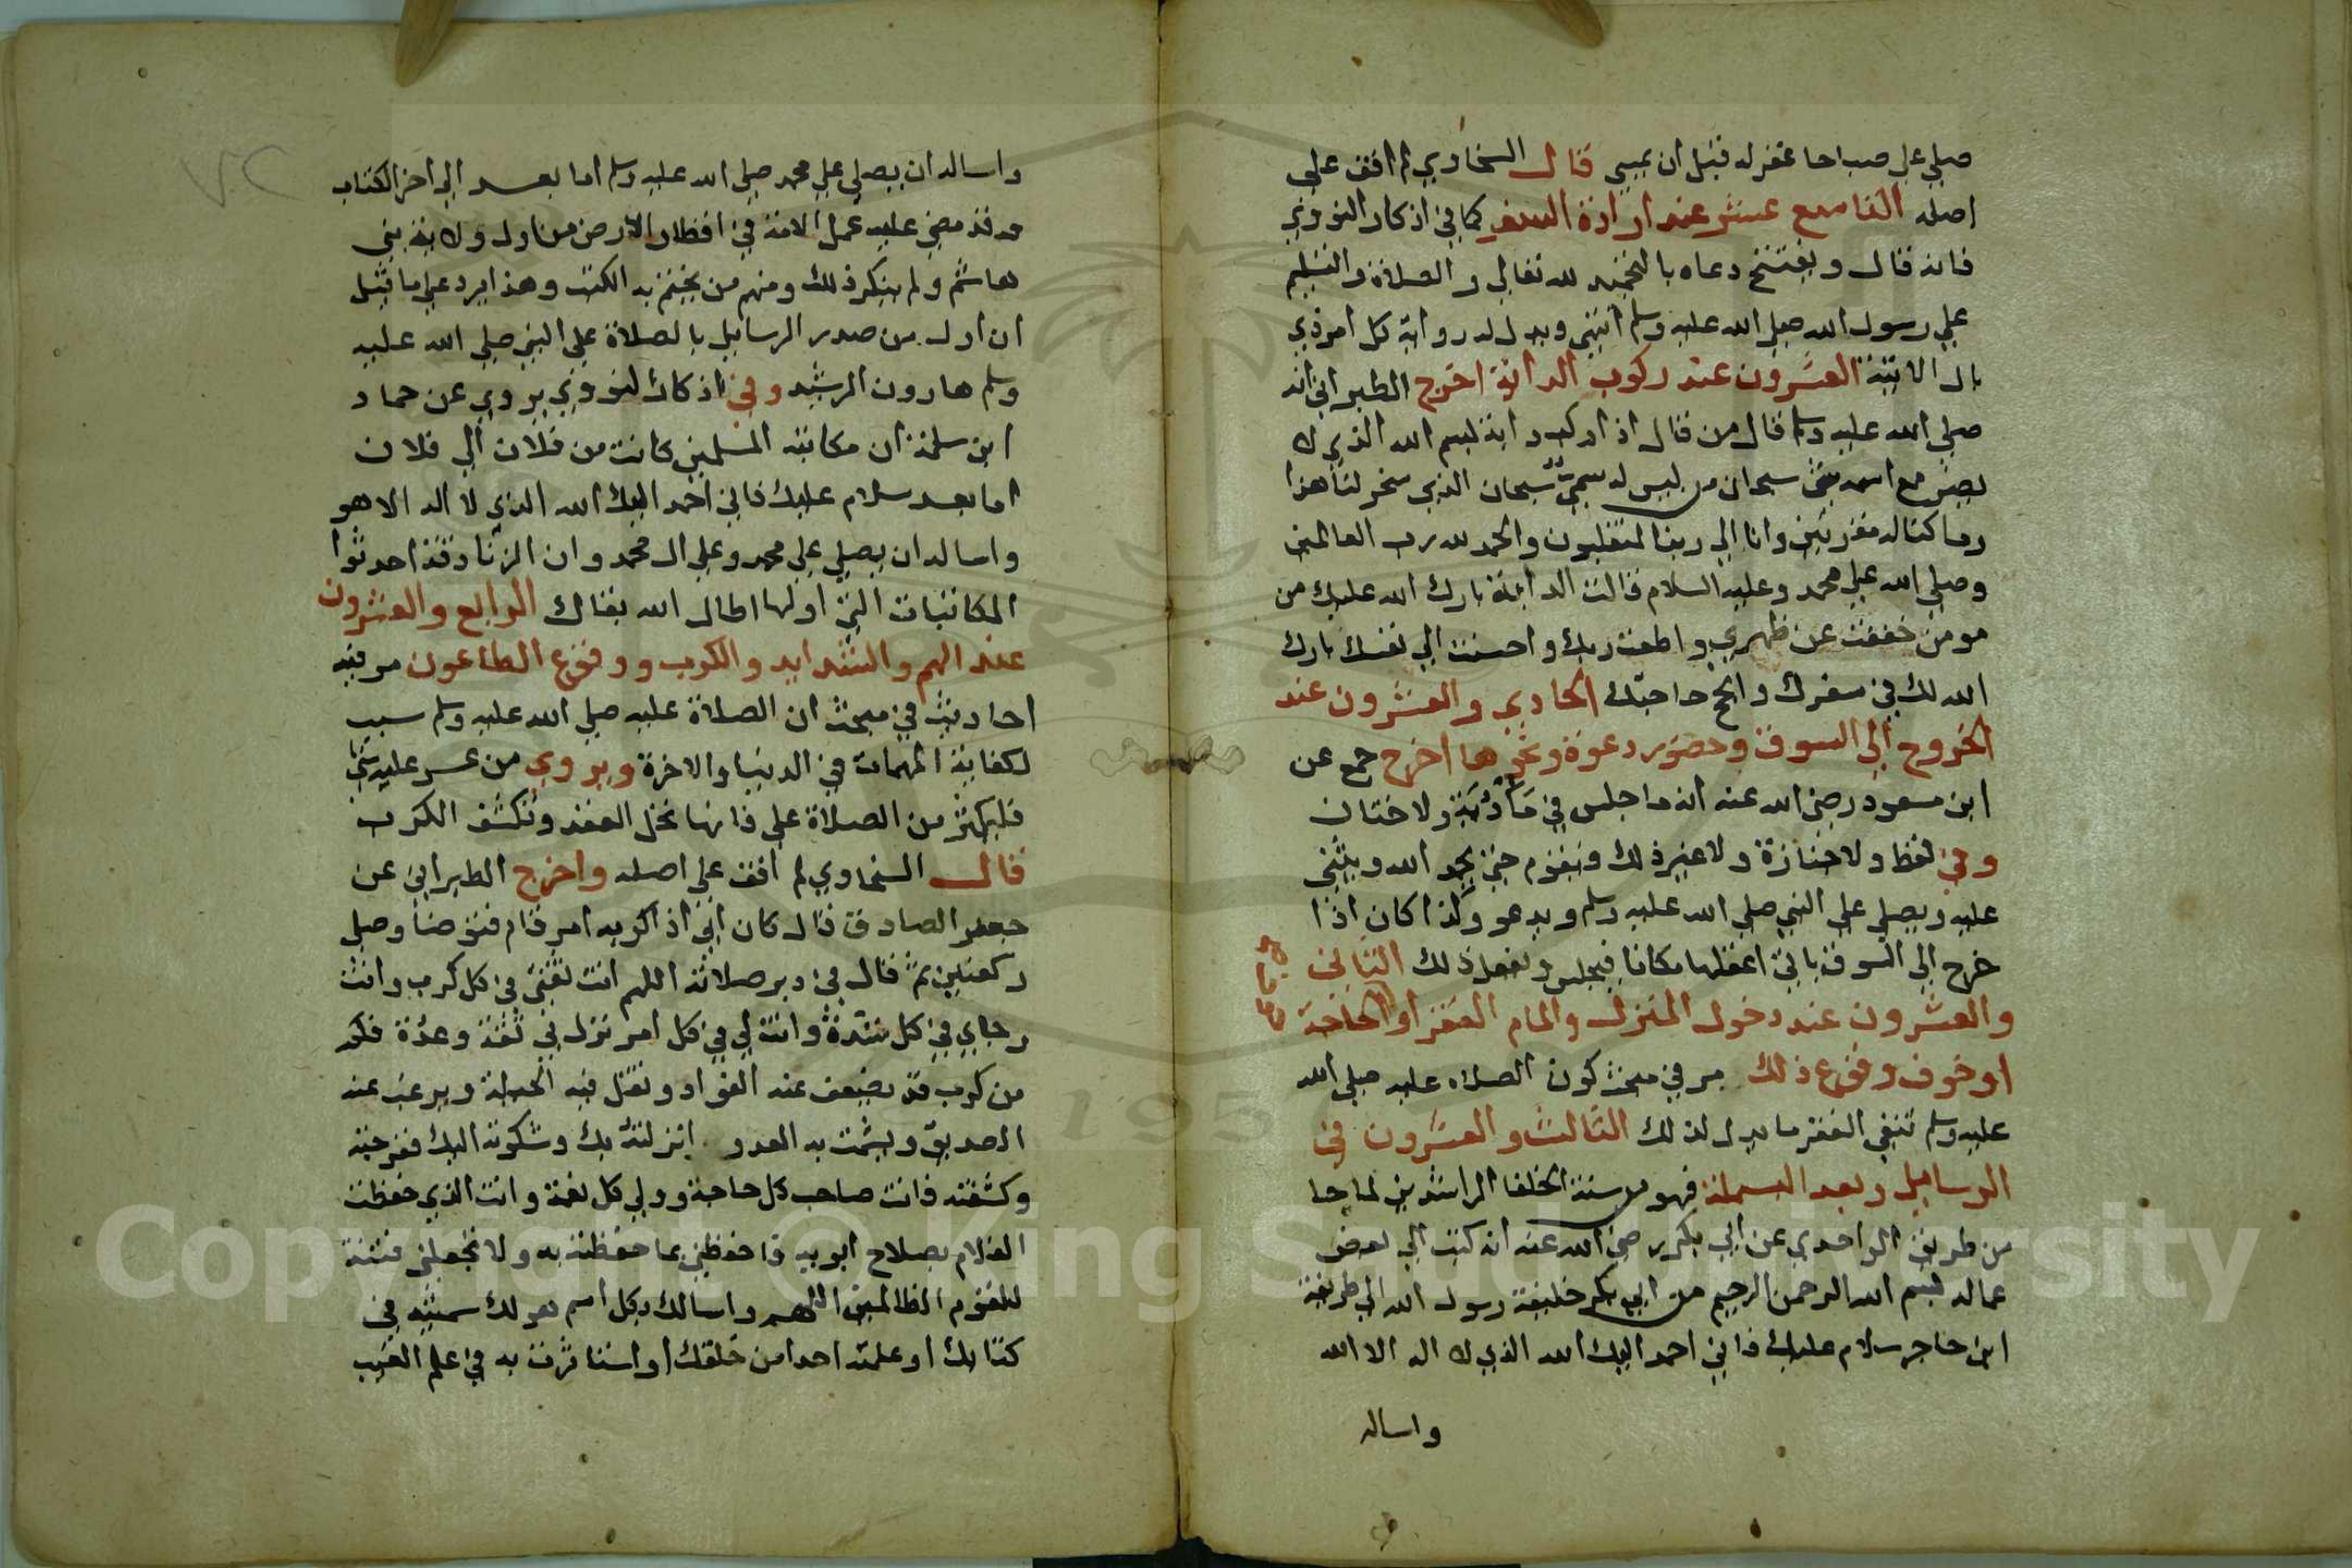 صلي علي صباحا غفر له قبل ان يمسي قال السخاوي لم اقف علي
اصله التاسع عشر عند ارادة السفر كما في اذكار النووي
فانه قال ويفتتح دعاه بالتحميد لله تعالي والصلاة والتسليم
علي رسول الله صلي الله عليه وسلم انتهي ويدل له رواية كل امر ذي
بال الاتية العشرون عند ركوب الدابة اخرج الطبراني انه
صلي الله عليه وسلم قال من قال اذا ركب دابة بسم الله الذي لا
يضر مع اسمه شي سبحان من ليس له سمي سبحان الذي سخر لنا هذا
وما كنا له مقرنين وانا الي ربنا لمنقلبون والحمد لله رب العالمين
وصلي الله علي محمد وعليه السلام قالت الدابة بارك الله عليك من
مومن خففت عن ظهري واطعت ربك واحسنت الي نفسك بارك
الله لك في سفرك وانجح حاجتك الحادي والعشرون عند
الخروج الي السوق وحضور دعوة ونحوها اخرج جمع عن
ابن مسعود رضي الله عنه انه ما جلس في مأدبة ولا ختان
وفي لفظ ولا جنازة ولا غير ذلك ويقوم حتي يحمد الله ويثني
عليه ويصلي علي النبي صلي الله عليه وسلم ويدعو وكذا كان اذا
خرج الي السوق ياتي اغفلها مكانا فيجلس ويفعل ذلك الثاني
والعشرون عند دخول المنزل والمام الفقر او الحاجة
او خوف وقوع ذلك مر في مبحث كون الصلاه عليه صلي الله
عليه وسلم تنفي الفقر ما يدل لذلك الثالث والعشرون في
الرسايل وبعد البسملة فهو من سنة الخلفا الراشدين لما جا
من طريق الواحدي عن ابي بكر رضي الله عنه انه كتب الي بعض
عماله بسم الله الرحمن الرحيم من ابي بكر خليفة رسول الله الي طريفة
ابن حاجر سلام عليك فاني احمد اليك الله الذي لا اله الا الله
واساله
واساله ان يصلي علي محمد صلي الله عليه وسلم اما بعد الي اخر الكتاب
وقد مضي عليه عمل الامة في اقطار الارض من اول ولاية بني
هاشم ولم ينكر ذلك ومنهم من يختم به الكتب وهذا يرد علي ما قيل
ان اول من صدر الرسايل بالصلاة علي النبي صلي الله عليه
وسلم هارون الرشيد وفي اذكار النووي يروي عن حماد
ابن سلمة ان مكاتبه المسلمين كانت من فلان الي فلان
اما بعد سلام عليك فاني احمد اليك الله الذي لا اله الا هو
واساله ان يصلي علي محمد وعلي ال محمد وان الزنادقة احدثوا
المكاتبات التي اولها اطال الله بقاك الرابع والعشرون
عند الهم والشدايد والكرب ووقوع الطاعون مر فيه
احاديث في مبحث ان الصلاة عليه صلي الله عليه وسلم سبب
لكفاية المهمات في الدنيا والاخرة ويروي من عسر عليه شي
فليكثر من الصلاة علي فانها تحل العقد وتكشف الكرب
قال السخاوي لم اقف علي اصله واخرج الطبراني عن
جعفر الصادق قال كان ابي اذا كربه امر قام فتوضأ وصلي
ركعتين ثم قال في دبر صلاته اللهم انت ثقتي في كل كرب وانت
رجاي في كل شدة وانت لي في كل امر نزل بي ثقة وعدة فكم
من كرب قد يضعف عنه الفواد وتقل فيه الحيلة ويرغب عنه
الصديق ويشمت به العدو انزلته بك وشكوته اليك ففرجته
وكشفته فانت صاحب كل حاجة وولي كل نعمة وانت الذي حفظت
الغلام بصلاح ابويه فاحفظني بما حفظته به ولا تجعلني فتنة
للقوم الظالمين اللهم واسالك بكل اسم هو لك سميته في
كتابك او علمته احدا من خلقك او استاثرت به في علم الغيب
Copyright © King Saud University
195